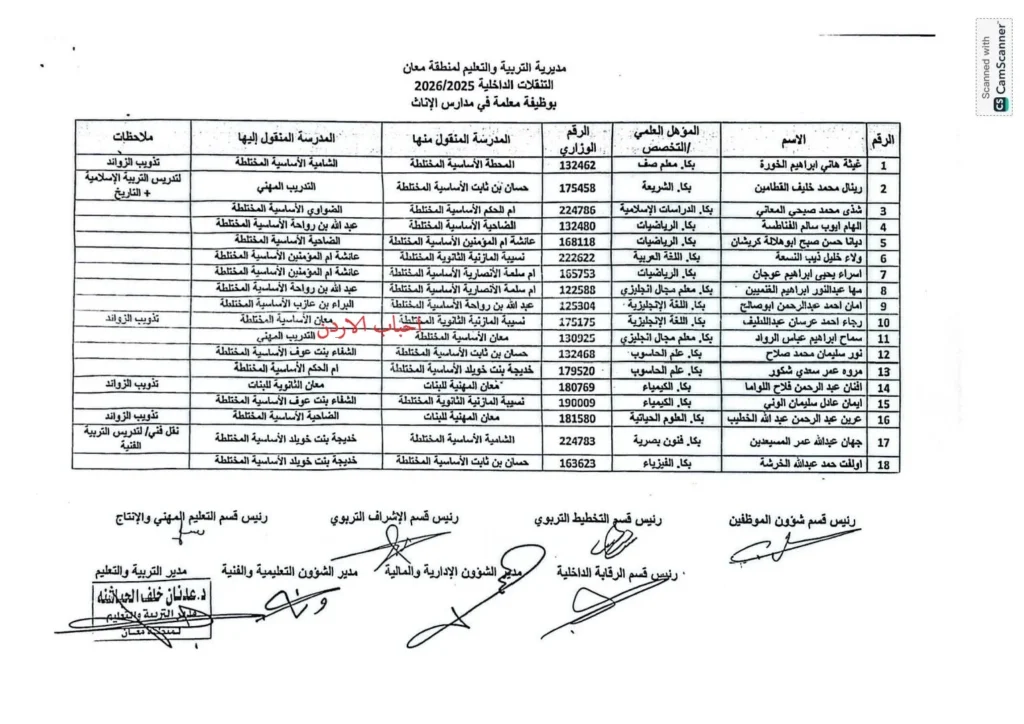 Scanned with
CS CamScanner
مديرية التربية والتعليم لمنطقة معان
التنقلات الداخلية 2026/2025
بوظيفة معلمة في مدارس الإناث
الرقم | الاسم | المؤهل العلمي /التخصص | الرقم الوزاري | المدرسة المنقول منها | المدرسة المنقول إليها | ملاحظات
1 | غيثة هاني ابراهيم الخورة | بكا. معلم صف | 132462 | المحطة الأساسية المختلطة | الشامية الأساسية المختلطة | تذويب الزوائد
2 | رينال محمد خليف القطامين | بكا. الشريعة | 175458 | حسان بن ثابت الأساسية المختلطة | التدريب المهني | لتدريس التربية الإسلامية + التاريخ
3 | شذى محمد صبحي المعاني | بكا. الدراسات الإسلامية | 224786 | ام الحكم الأساسية المختلطة | الضواوي الأساسية المختلطة
4 | الهام ايوب سالم الفناطسة | بكا. الرياضيات | 132480 | الضاحية الأساسية المختلطة | عبد الله بن رواحة الأساسية المختلطة
5 | ديانا حسن صبح ابوهلالة كريشان | بكا. الرياضيات | 168118 | عائشة ام المؤمنين الأساسية المختلطة | الضاحية الأساسية المختلطة
6 | ولاء خليل ذيب النسعة | بكا. اللغة العربية | 222622 | نسيبة المازنية الثانوية المختلطة | عائشة ام المؤمنين الأساسية المختلطة
7 | اسراء يحيى ابراهيم عوجان | بكا. الرياضيات | 165753 | ام سلمة الأنصارية الأساسية المختلطة | عائشة ام المؤمنين الأساسية المختلطة
8 | مها عبدالنور ابراهيم القنميين | بكا. معلم مجال انجليزي | 122588 | ام سلمة الأنصارية الأساسية المختلطة | عبد الله بن رواحة الأساسية المختلطة
9 | امان احمد عبدالرحمن ابوصالح | بكا. اللغة الإنجليزية | 125304 | عبد الله بن رواحة الأساسية المختلطة | البراء بن عازب الأساسية المختلطة
10 | رجاء احمد عرسان عبداللطيف | بكا. اللغة الإنجليزية | 175175 | نسيبة المازنية الثانوية المختلطة | معان الأساسية المختلطة | تذويب الزوائد
أحباب الاردن
11 | سماح ابراهيم عباس الرواد | بكا. معلم مجال انجليزي | 130925 | معان الأساسية المختلطة | التدريب المهني
12 | نور سليمان محمد صلاح | بكا. علم الحاسوب | 132468 | حسان بن ثابت الأساسية المختلطة | الشفاء بنت عوف الأساسية المختلطة
13 | مروه عمر سعدي شكور | بكا. علم الحاسوب | 179520 | خديجة بنت خويلد الأساسية المختلطة | ام الحكم الأساسية المختلطة
14 | افنان عبد الرحمن فلاح اللواما | بكا. الكيمياء | 180769 | معان المهنية للبنات | معان الثانوية للبنات | تذويب الزوائد
15 | ايمان عادل سليمان الوني | بكا. الكيمياء | 190009 | نسيبة المازنية الثانوية المختلطة | الشفاء بنت عوف الأساسية المختلطة
16 | عرين عبد الرحمن عبد الله الخطيب | بكا. العلوم الحياتية | 181580 | معان المهنية للبنات | الضاحية الأساسية المختلطة | تذويب الزوائد
17 | جهان عبدالله عمر المسيعدين | بكا. فنون بصرية | 224783 | الشامية الأساسية المختلطة | خديجة بنت خويلد الأساسية المختلطة | نقل فني/ لتدريس التربية الفنية
18 | اولفت حمد عبدالله الخرشة | بكا. الفيزياء | 163623 | حسان بن ثابت الأساسية المختلطة | خديجة بنت خويلد الأساسية المختلطة
رئيس قسم شؤون الموظفين
رئيس قسم التخطيط التربوي
رئيس قسم الإشراف التربوي
رئيس قسم التعليم المهني والإنتاج
رئيس قسم الرقابة الداخلية
مدير الشؤون الإدارية والمالية
مدير الشؤون التعليمية والفنية
مدير التربية والتعليم
د. عدنان خلف الحبلاشنه
مدير التربية والتعليم
لمنطقة معان